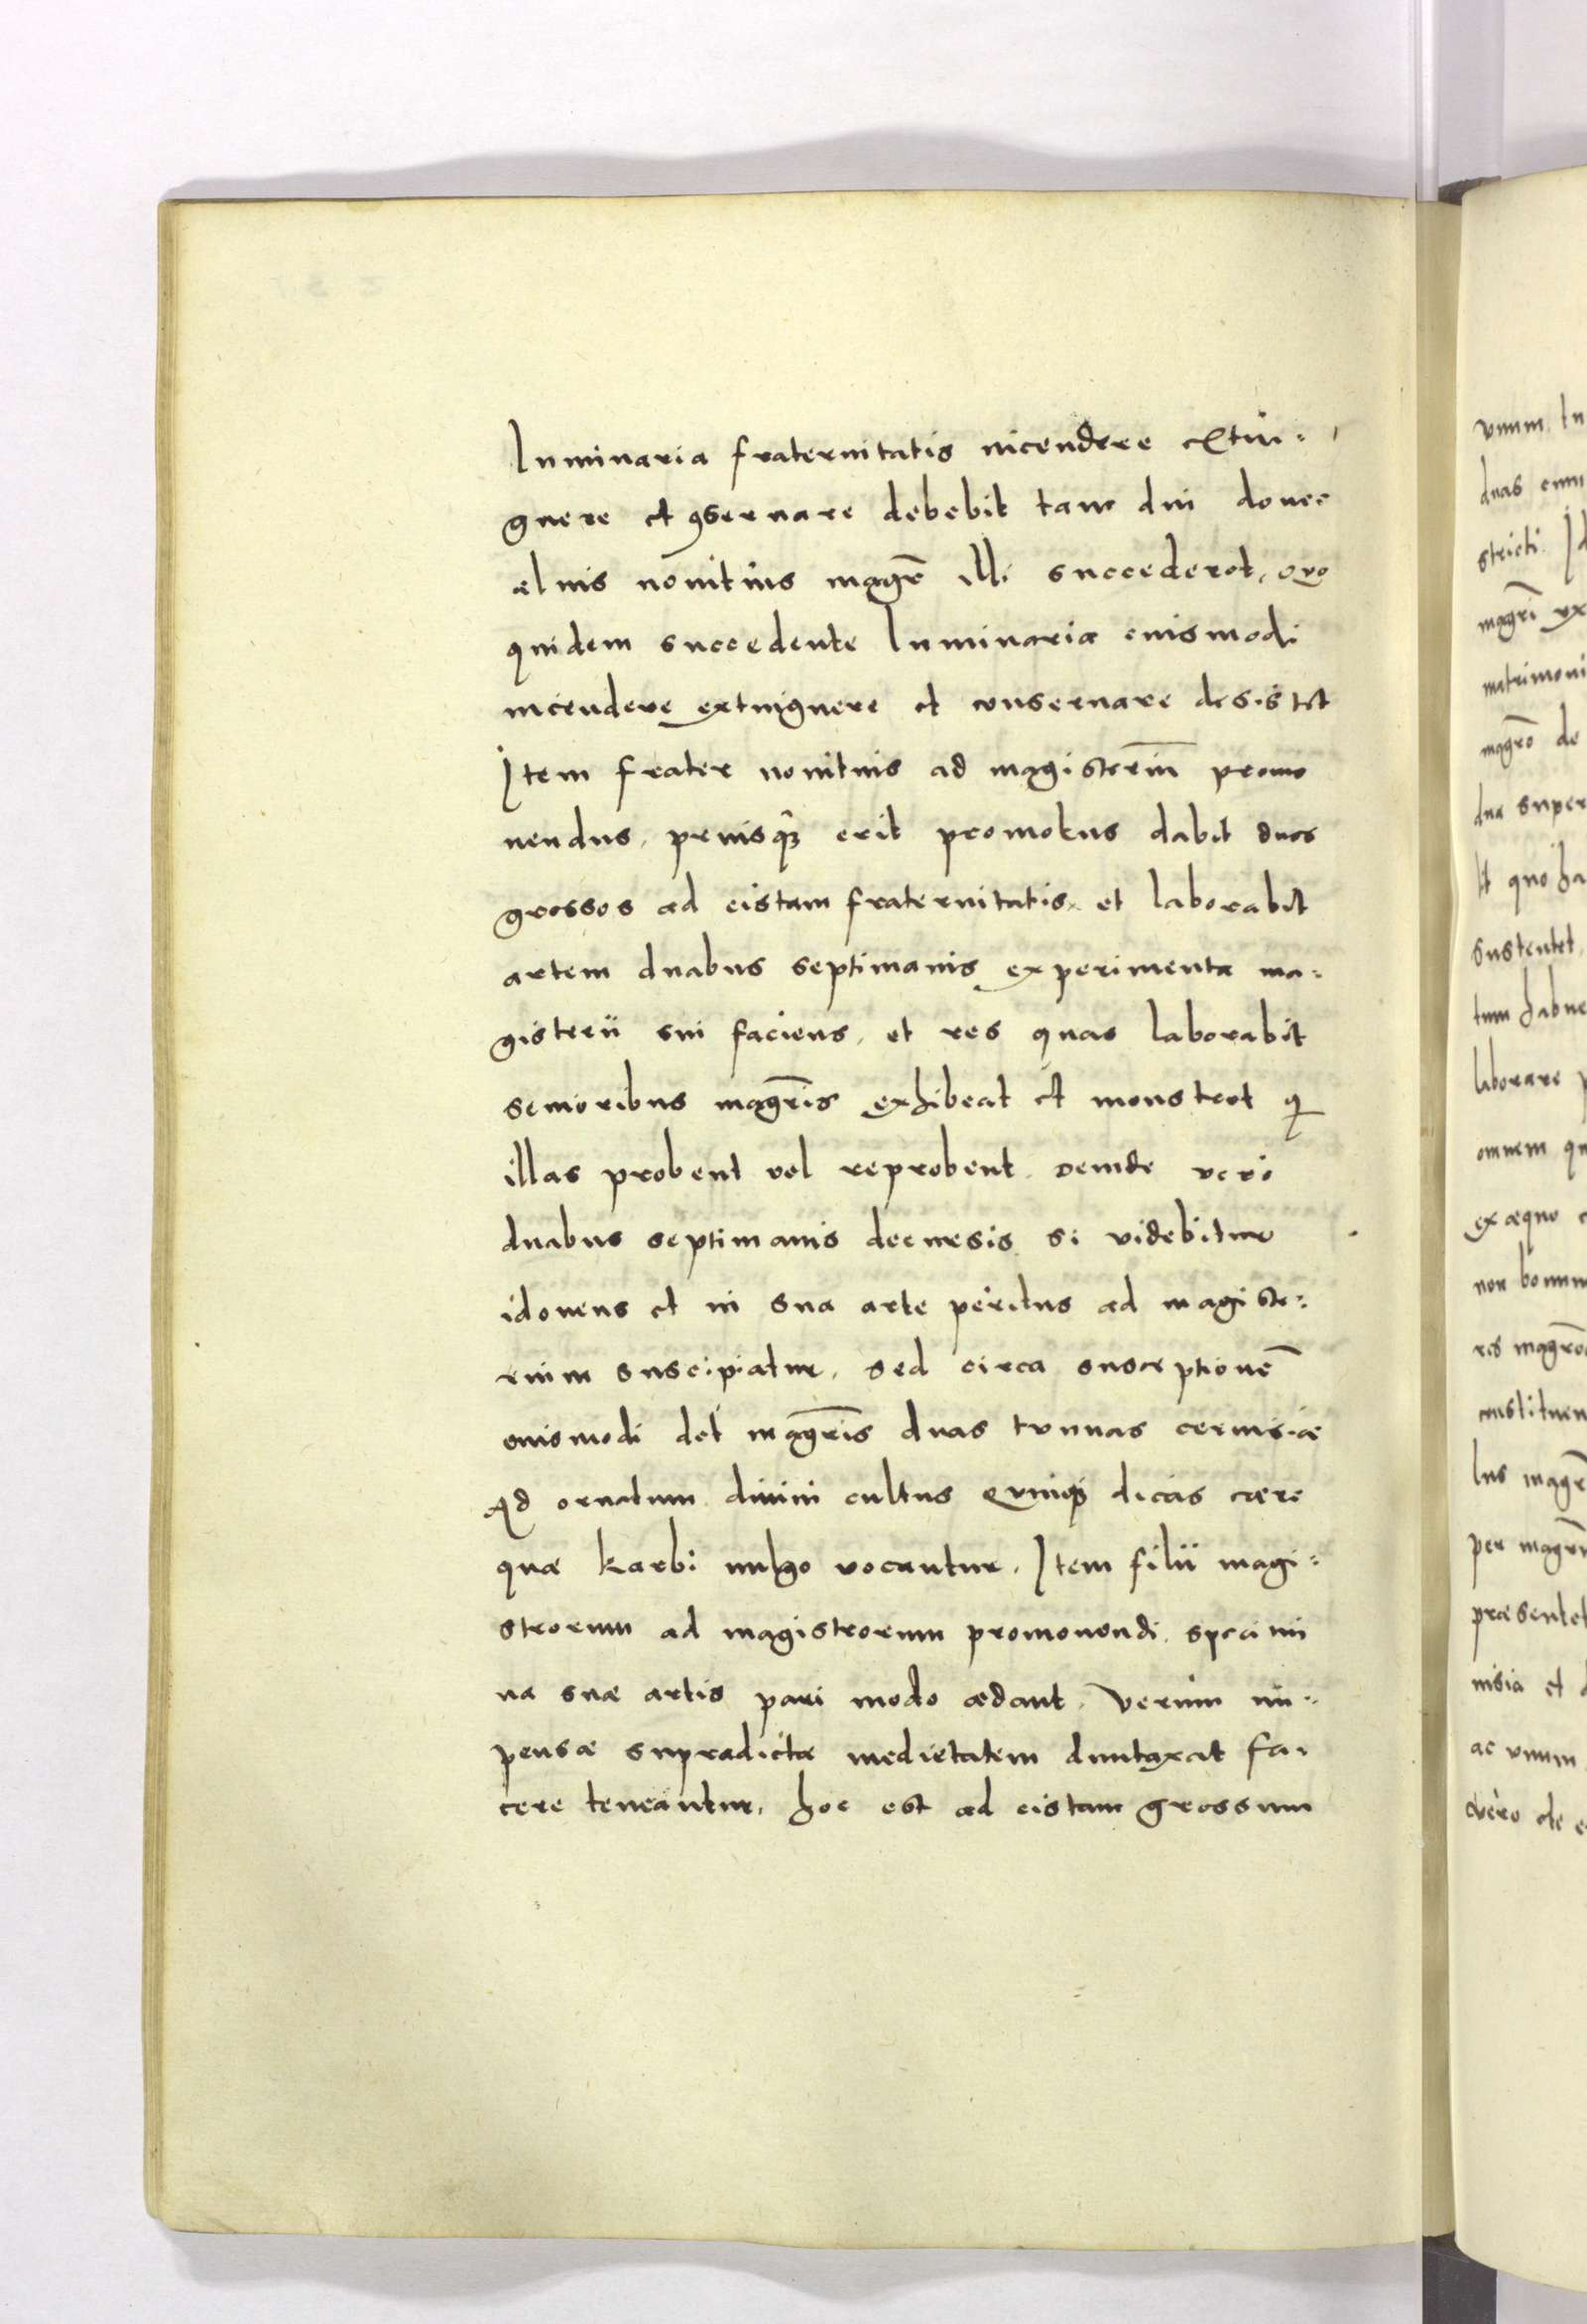 luminaria fraternitatis incendere extin-
guere et ꝯseruare debebit tam diu donec
aluis nouitius magr̄ illi succederet, quo
quidem succedente luminaria euismodi
incendere extinguere et conseruare desistet
Item frater nouitius ad magisteriū promo
uendus, priusqꝫ erit promotus dabit duos
grossos ad cistam fraternitatis, et laborabit
artem duabus septimanis experimenta ma-
gisterii sui faciens, et res quas laborabit
senioribus magrīs exhibeat et monstret qi
illas probent vel reprobent. Deinde vero
duabus septimanis decursis si videbitur
idoneus et in sua arte peritus ad magiste-
rium suscipiatur, sed circa susceptionē
euismodi det magrīs duas tunnas ceruisiæ
Ad ornatum diuini cultus quinqꝫ dicas cære
quæ karbi uulgo vocantur. Item filii magi-
strorum ad magistrorum promouendi, specimi
na suæ artis pari modo ædant, Verum im-
pensæ supradictæ medietatem duntaxat fa-
cere teneantur, hoc est ad cistam grossum
vnum
duas
stricti
magrī ux
matrimoni
magrō de
dua super
et quo ha
sustentet,
tum habue
laborare
omnem qu
ex æquo
non bonum
res magrō
constituen
lus magr̄
per magr̄
præsentet
uisia et
ac vnum
vero de